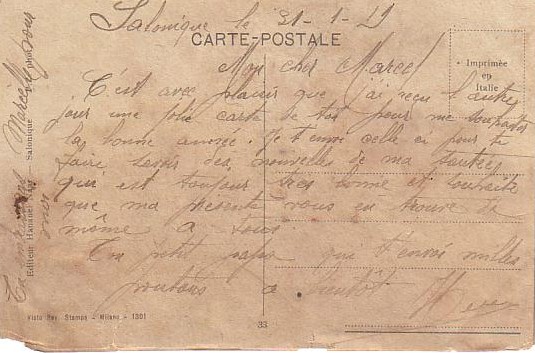 Salonique le 21-1-19
CARTE-POSTALE
Imprimée
en
Italie
Mon cher Marcel
C'est avec plaisir que j'ai reçu l'autre
jour une jolie carte de toi pour me souhaiter
la bonne année. Je t'envoi celle ci pour te
faire savoir des nouvelles de ma santée
qui est toujour tres bonne et souhaite
que ma presente vous en trouve de
même a tous
Ton petit papa qui t'envoi milles
a bientôt
Editeur Hanania Naar - Salonique
Visto Rev. Stampa - Milano - 1301
33